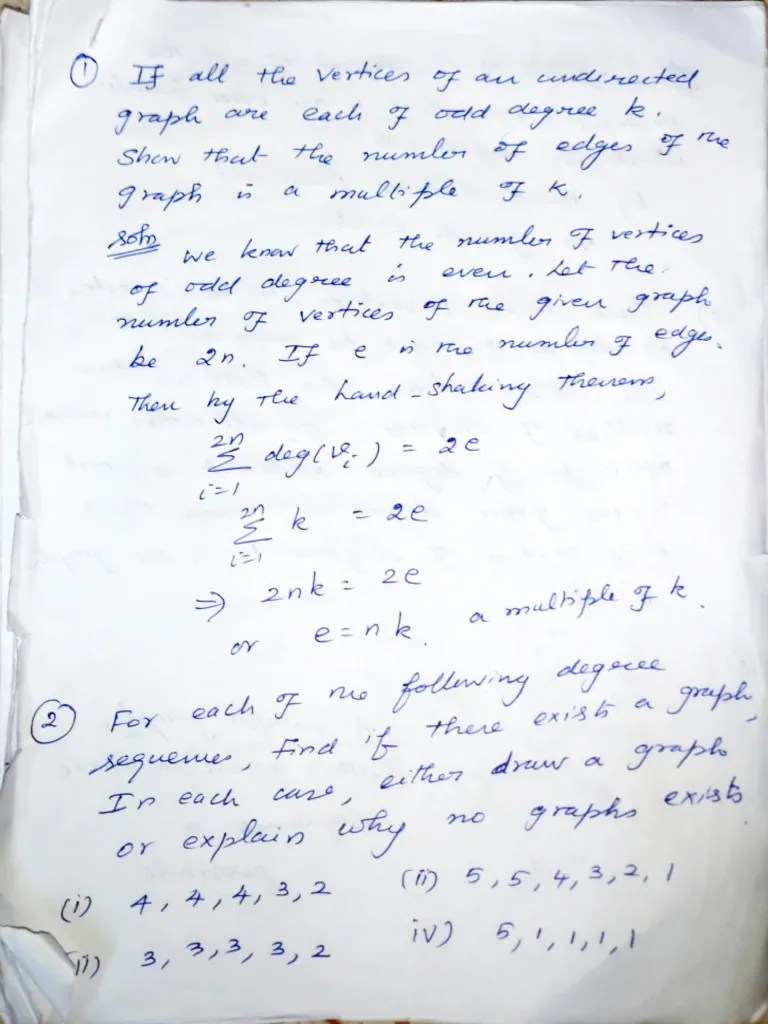 ① If all the vertices of an undirected
graph are each of odd degree k.
Show that the number of edges of the
graph is a multiple of k.
Soln we know that the number of vertices
of odd degree is even. Let the
number of vertices of the given graph
be 2n. If e is the number of edges.
Then by the hand-shaking theorem,
2n
Σ deg(vᵢ) = 2e
i=1
2n
Σ k = 2e
i=1
⇒ 2nk = 2e
or e = nk. a multiple of k.
② For each of the following degree
sequences, find if there exists a graph,
In each case, either draw a graph
or explain why no graphs exists
(i) 4, 4, 4, 3, 2 (ii) 5, 5, 4, 3, 2, 1
ii) 3, 3, 3, 3, 2 iv) 5, 1, 1, 1, 1